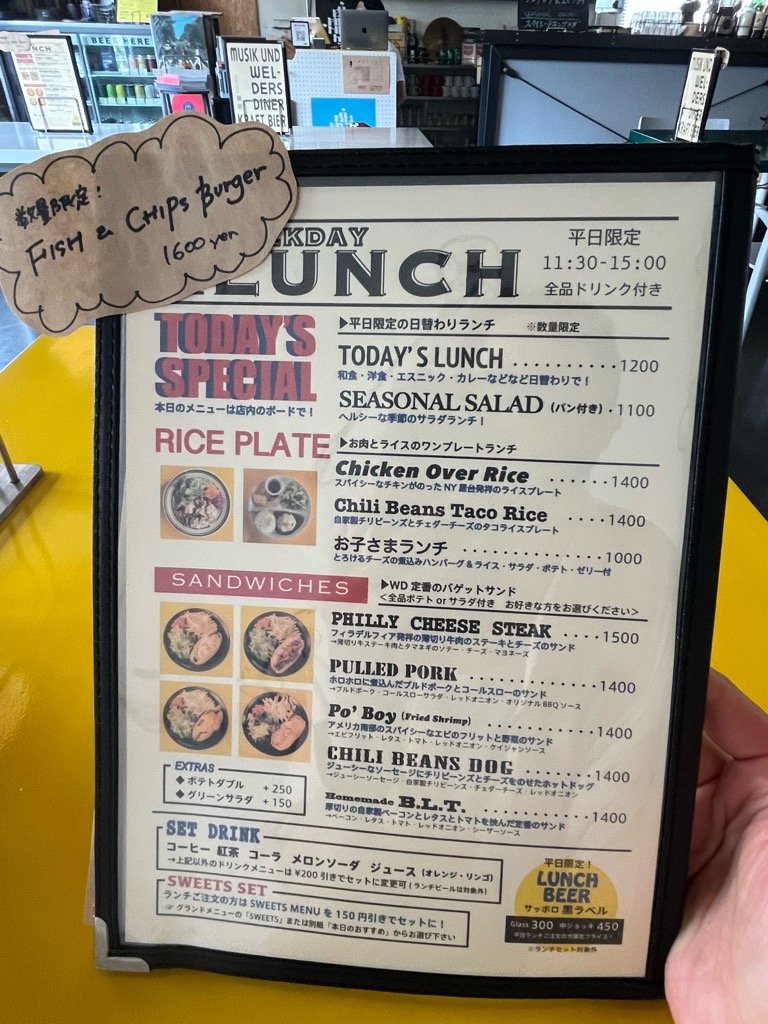 BEER HERE
MUSIK UND
WEL-
DERS
DINER
KRAFT BIER
数量限定:
FISH & CHIPS Burger
1600 yen
LUNCH
平日限定
11:30-15:00
全品ドリンク付き
TODAY'S
SPECIAL
本日のメニューは店内のボードで!
▶平日限定の日替わりランチ ※数量限定
TODAY'S LUNCH ..........1200
和食・洋食・エスニック・カレーなどなど日替わりで!
SEASONAL SALAD (パン付き)・1100
ヘルシーな季節のサラダランチ!
RICE PLATE
▶お肉とライスのワンプレートランチ
Chicken Over Rice ......1400
スパイシーなチキンがのったNY屋台発祥のライスプレート
Chili Beans Taco Rice ....1400
自家製チリビーンズとチェダーチーズのタコライスプレート
お子さまランチ ..............1000
とろけるチーズの煮込みハンバーグ&ライス・サラダ・ポテト・ゼリー付
SANDWICHES
▶WD 定番のバゲットサンド
<全品ポテト or サラダ付き お好きな方をお選びください>
PHILLY CHEESE STEAK ....1500
フィラデルフィア発祥の薄切り牛肉のステーキとチーズのサンド
→薄切り牛ステーキ肉とタマネギのソテー・チーズ・マヨネーズ
PULLED PORK ............1400
ホロホロに煮込んだプルドポークとコールスローのサンド
→プルドポーク・コールスローサラダ・レッドオニオン・オリジナルBBQソース
Po' Boy (Fried Shrimp) ..........1400
アメリカ南部のスパイシーなエビのフリットと野菜のサンド
→エビフリット・レタス・トマト・レッドオニオン・ケイジャンソース
CHILI BEANS DOG ........1400
ジューシーなソーセージにチリビーンズとチーズをのせたホットドッグ
→ジューシーソーセージ・自家製チリビーンズ・チェダーチーズ・レッドオニオン
Homemade B.L.T. ............1400
厚切りの自家製ベーコンとレタスとトマトを挟んだ定番のサンド
→ベーコン・レタス・トマト・レッドオニオン・シーザーソース
EXTRAS
◆ ポテトダブル + 250
◆ グリーンサラダ + 150
SET DRINK
コーヒー 紅茶 コーラ メロンソーダ ジュース (オレンジ・リンゴ)
→上記以外のドリンクメニューは¥200引きでセットに変更可(ランチビールは対象外)
SWEETS SET
ランチご注文の方は SWEETS MENU を 150 円引きでセットに!
☞ グランドメニューの「SWEETS」または別紙「本日のおすすめ」からお選び下さい
平日限定!
LUNCH
BEER
サッポロ 黒ラベル
Glass 300 中ジョッキ 450
平日ランチご注文の方限定プライス!
※ランチセット対象外